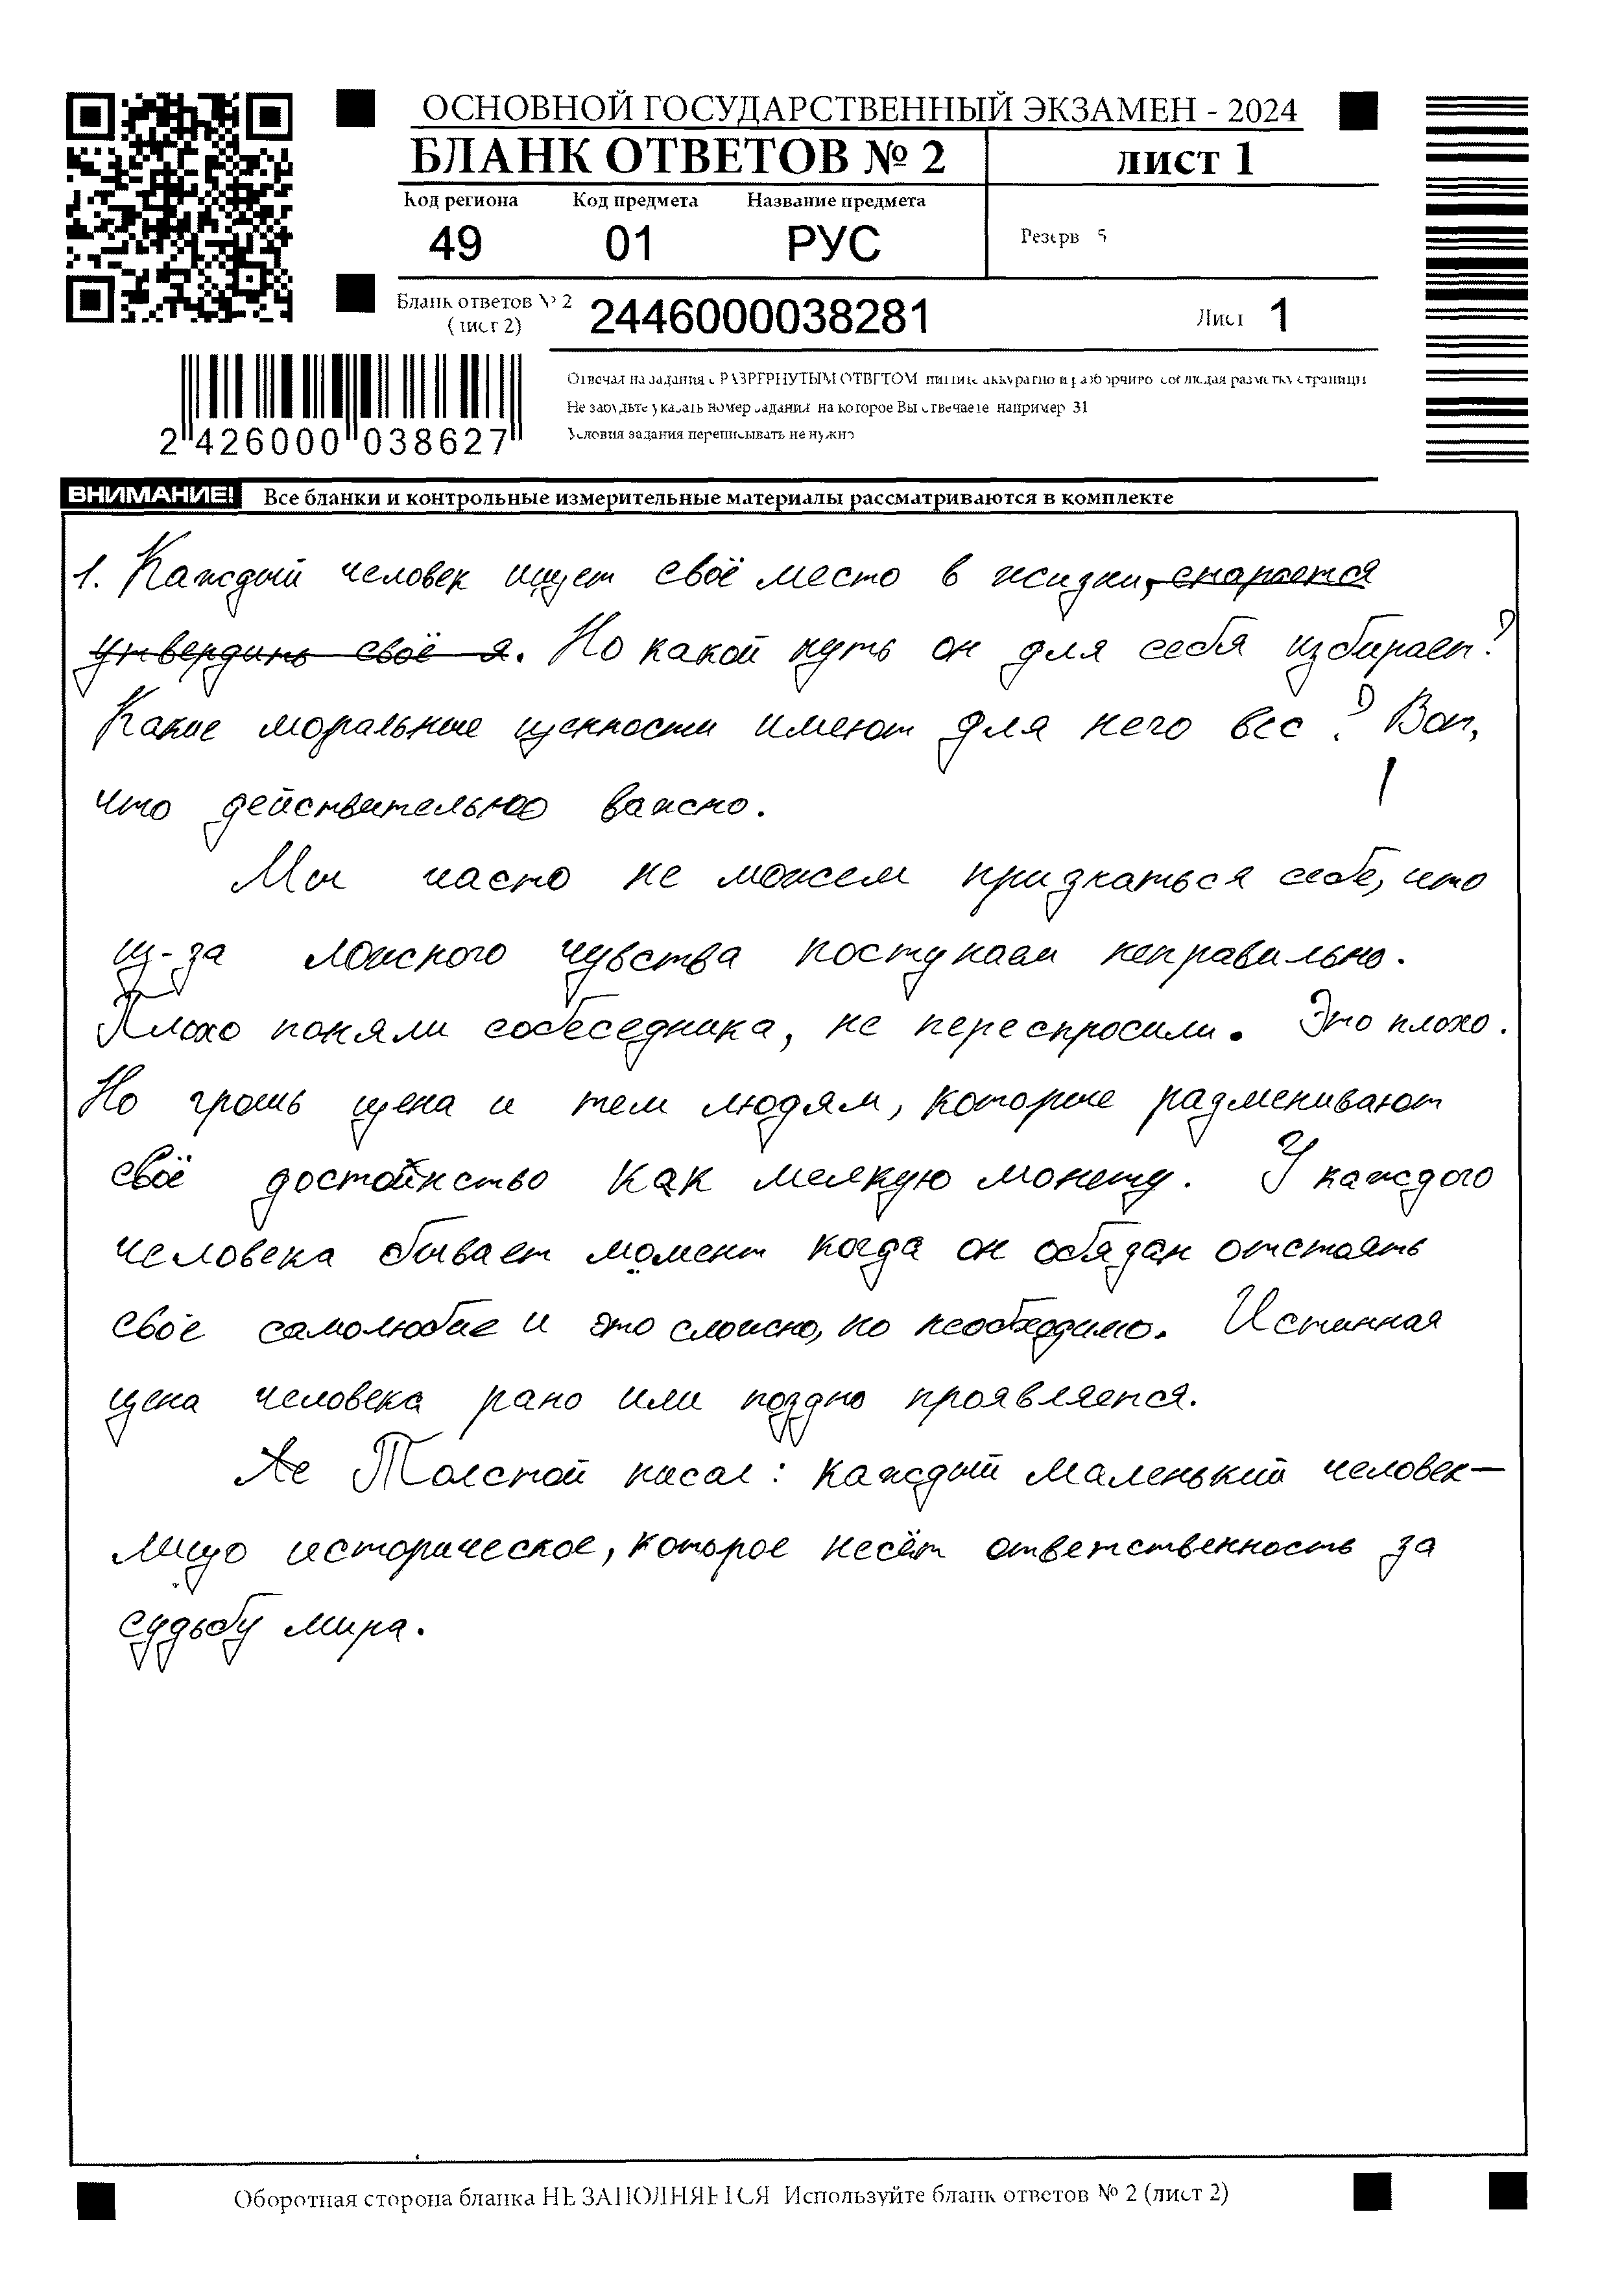 ОСНОВНОЙ ГОСУДАРСТВЕННЫЙ ЭКЗАМЕН - 2024
БЛАНК ОТВЕТОВ № 2
ЛИСТ 1
Код региона Код предмета Название предмета
49 01 РУС
Резерв 5
Бланк ответов № 2
(лист 2)
2446000038281
Лист 1
2 426000 038627
Отвечая на задания с РАЗВЕРНУТЫМ ОТВЕТОМ пишите аккуратно и разборчиво соблюдая разметку страницы
Не забудьте указать номер задания на которое Вы отвечаете например 31
Условия задания переписывать не нужно
ВНИМАНИЕ! Все бланки и контрольные измерительные материалы рассматриваются в комплекте
1. Каждый человек ищет своё место в жизни, старается
утвердить своё я. Но какой путь он для себя избирает?
Какие моральные ценности имеют для него вес? Вот,
что действительно важно.
Мы часто не можем признаться себе, что
из-за ложного чувства поступаем неправильно.
Плохо поняли собеседника, не переспросили. Это плохо.
Но грошь цена и тем людям, которые разменивают
своё достойнство как мелкую монету. У каждого
человека бывает момент когда он обязан отстоять
своё самолюбие и это сложно, но необходимо. Истинная
цена человека рано или поздно проявляется.
Толстой писал: каждый маленький человек—
лицо историческое, которое несёт ответственность за
судьбу мира.
Оборотная сторона бланка НЕ ЗАПОЛНЯЕТСЯ Используйте бланк ответов № 2 (лист 2)